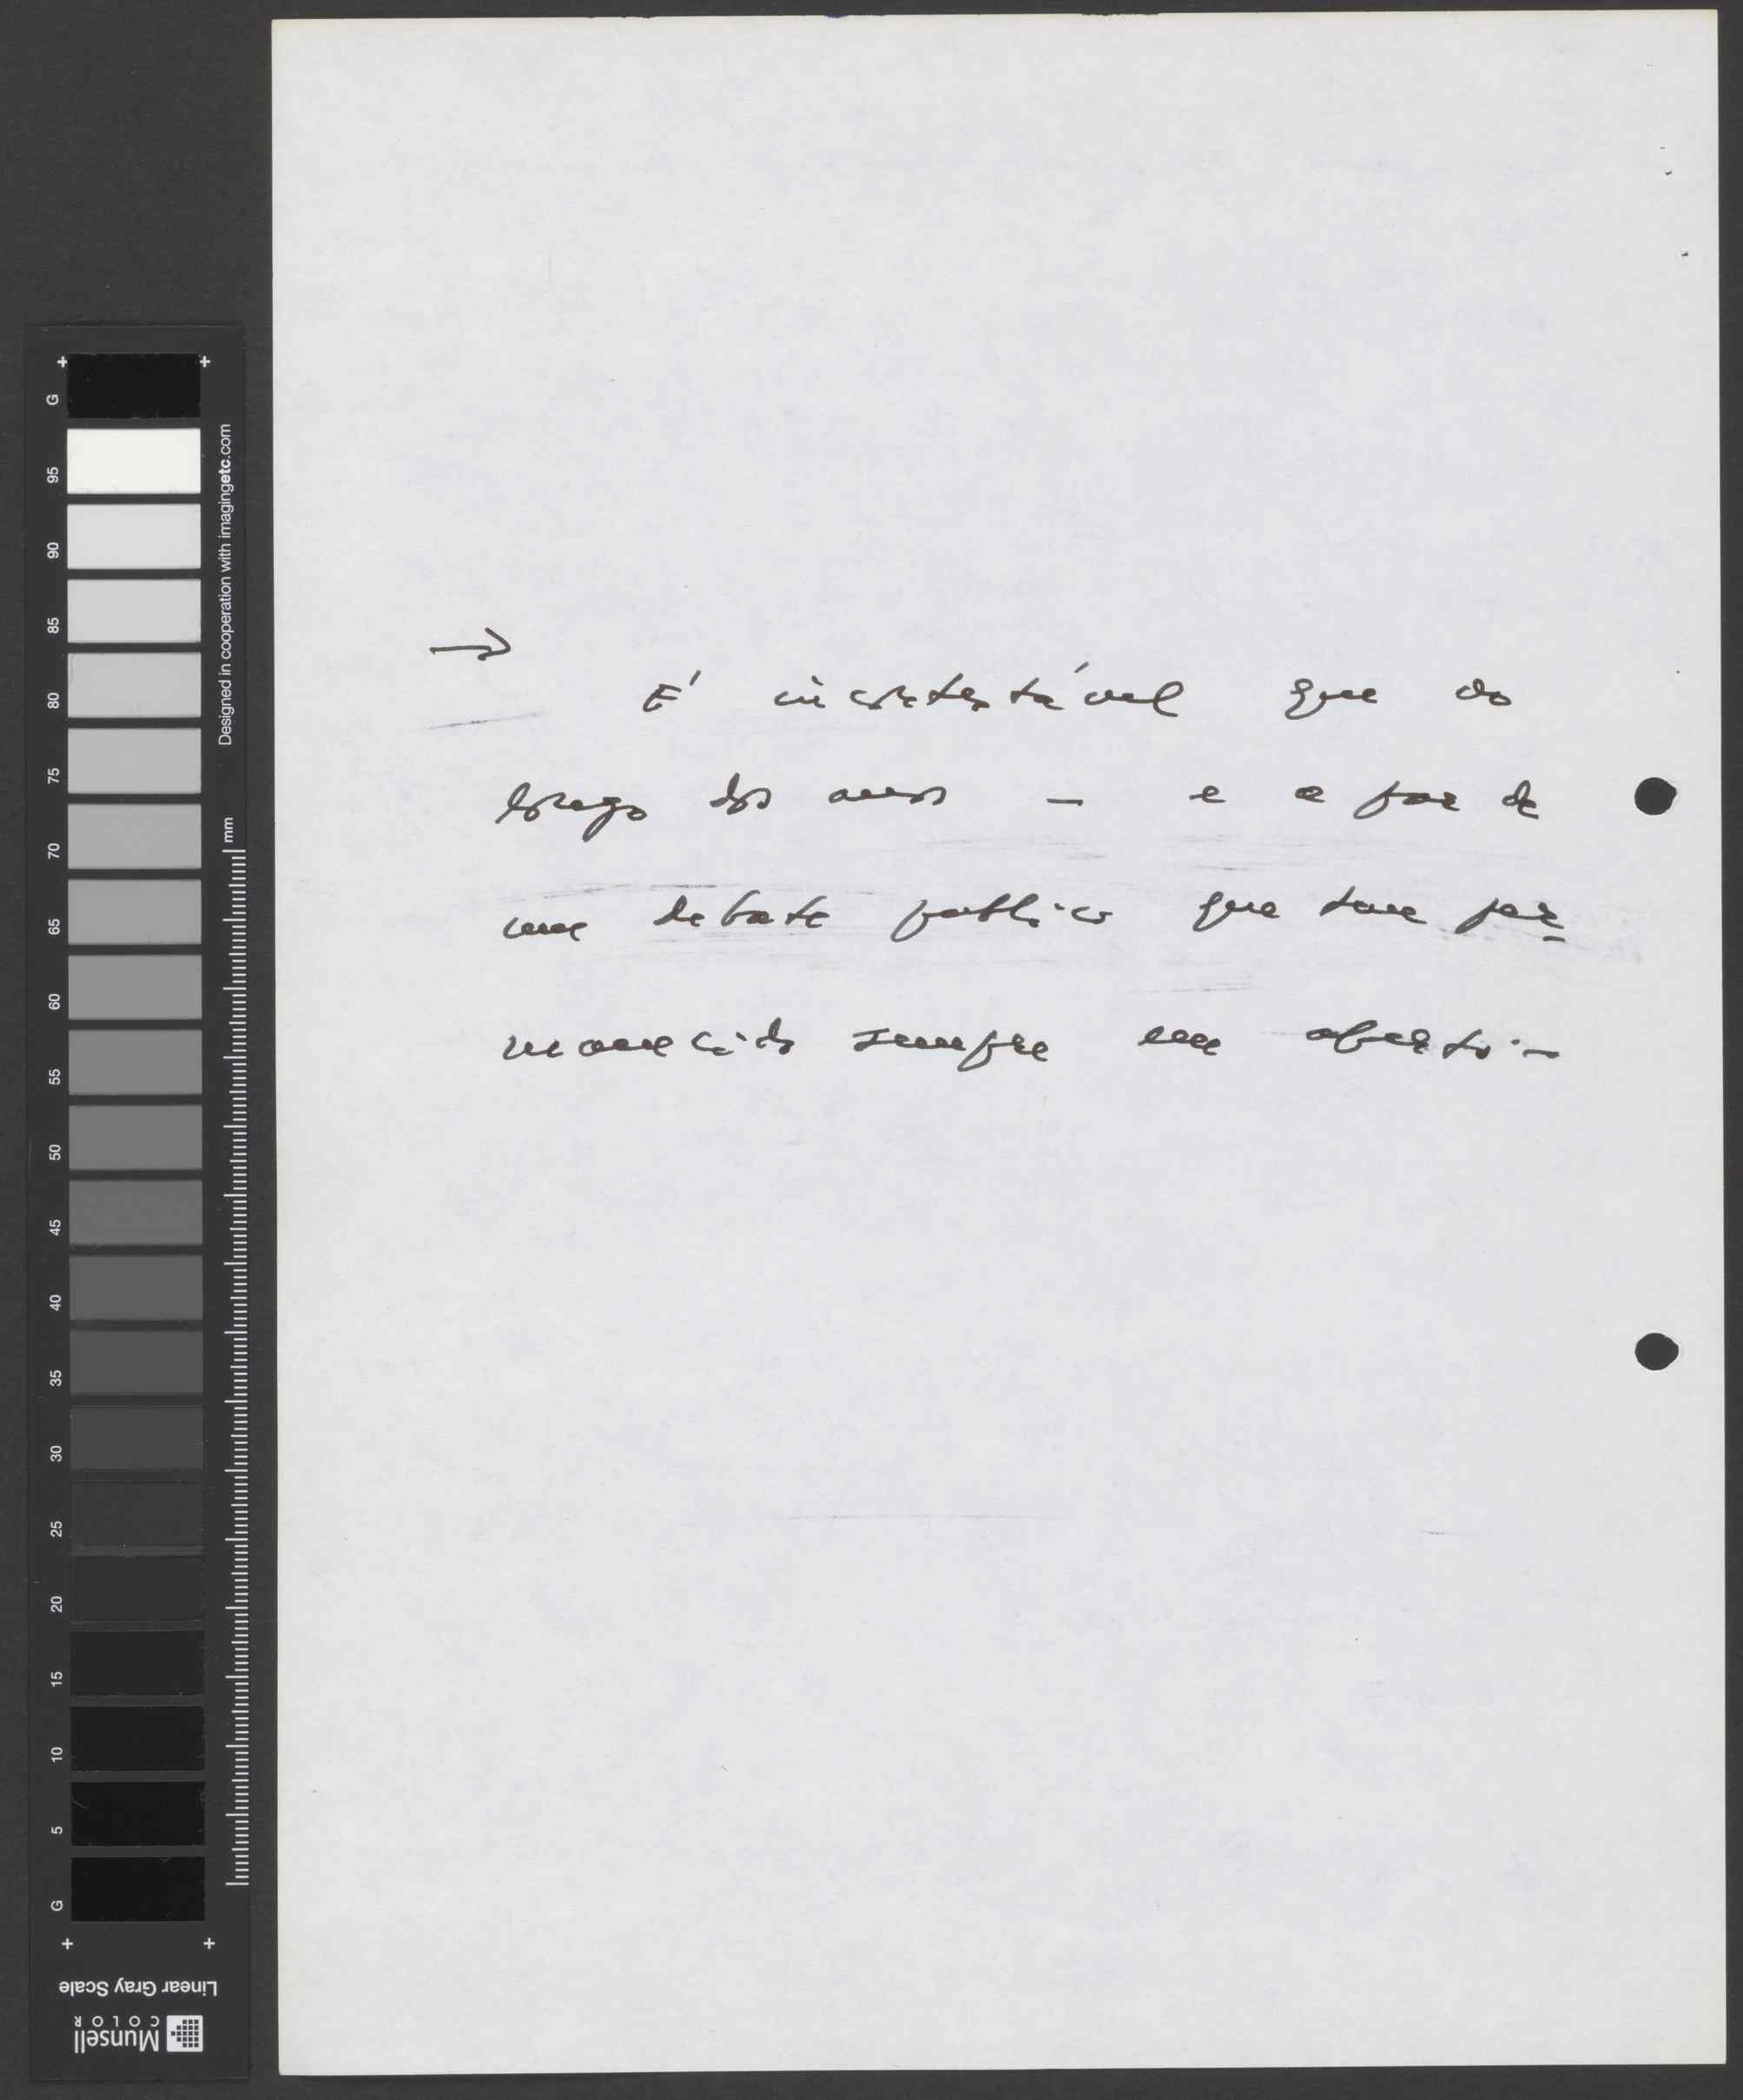 → É incontestável que ao
longo dos anos – e a par de
um debate publico que tem per
manecido sempre em aberto –
G
95
90
85
80
75
70
65
60
55
50
45
40
35
30
25
20
15
10
5
G
Designed in cooperation with imagingetc.com
mm
Linear Gray Scale
Munsell
COLOR